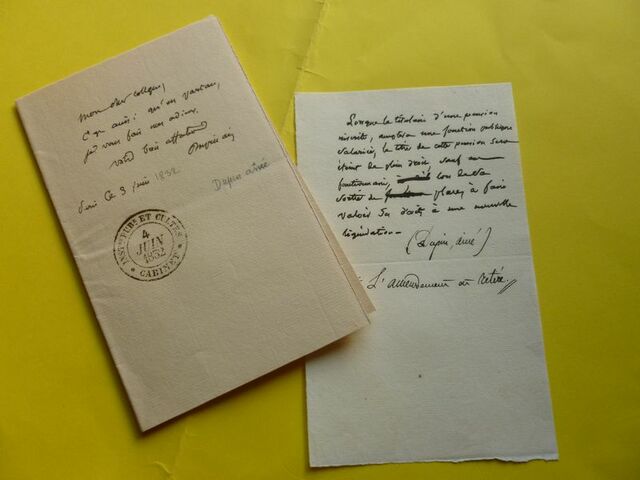 mon cher collègue,
C'est ainsi qu'en partant,
je vous fais mes adieux.
Votre bien affectionné
Dupin aîné
Paris Ce 3 juin 1832
Dupin aîné
INSTon PUBe ET CULTES
4
JUIN
1832
CABINET
Lorsque le titulaire d'une pension
inscrite, remplira une fonction publique
salariée, le titre de cette pension sera
éteint de plein droit sauf au
fonctionnaire, lors de sa
sortie de place, à faire
valoir ses droits à une nouvelle
liquidation -
(Dupin, aîné)
L'amendement est retiré.